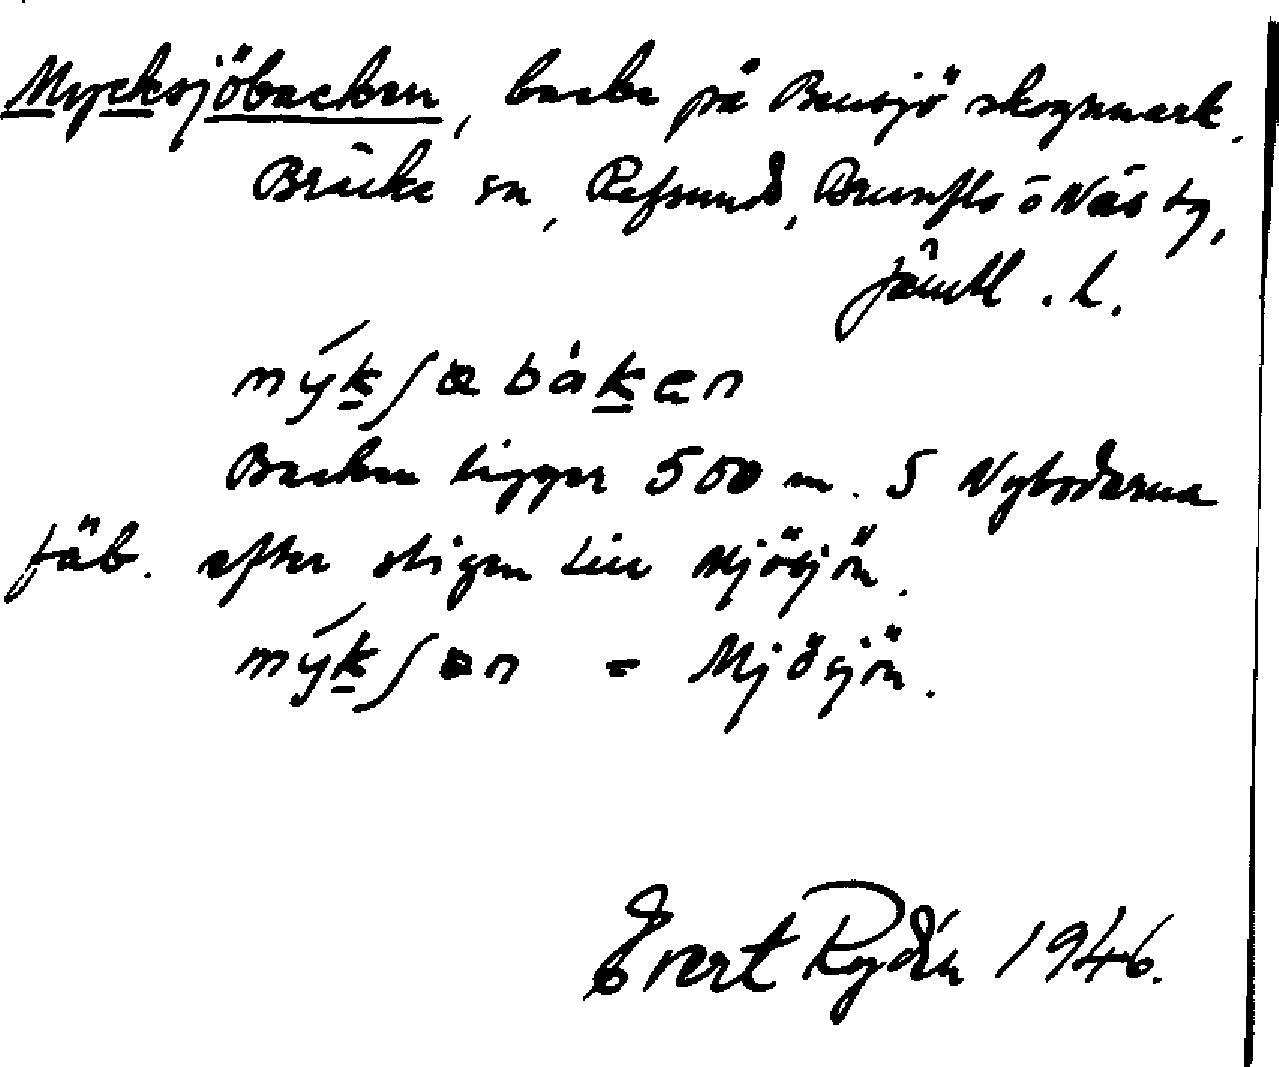 Mycksjöbacken, backe på Bensjö skogsmark.
Bräcke sn, Refsunds, Brunflo o Näs tg,
Jämtl. l.
mýkʃœ båkæn
Backen ligger 500 m. S Nybodarna
fäb. efter stigen till Mjösjön.
mýkʃœn = Mjösjön.
Evert Rydén 1946.